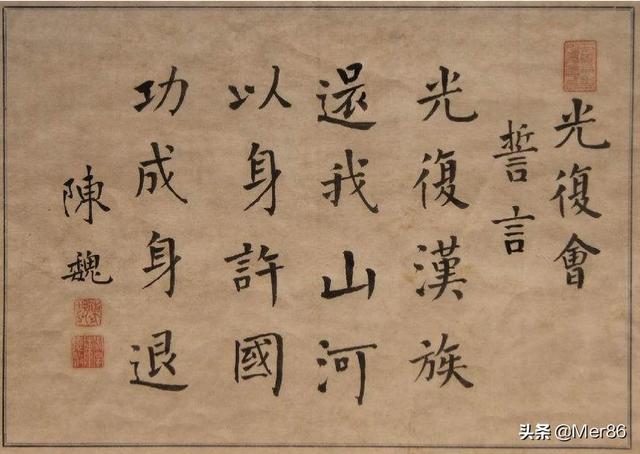 光復會
誓言
光復漢族
還我山河
以身許國
功成身退
陳魏
头条 @Mer86